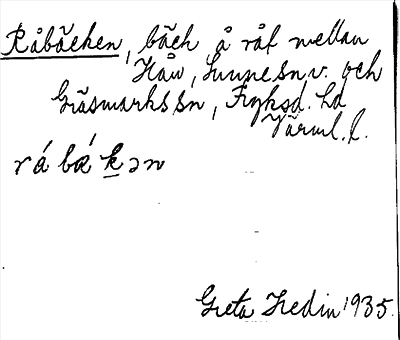 Råbäcken, bäck å råf mellan
Håw, Sunne sn, v. och
Gräsmarks sn, Fryksd. hd
Värml. l.
rá bǽ k̲ən
Greta Hedin 1935.